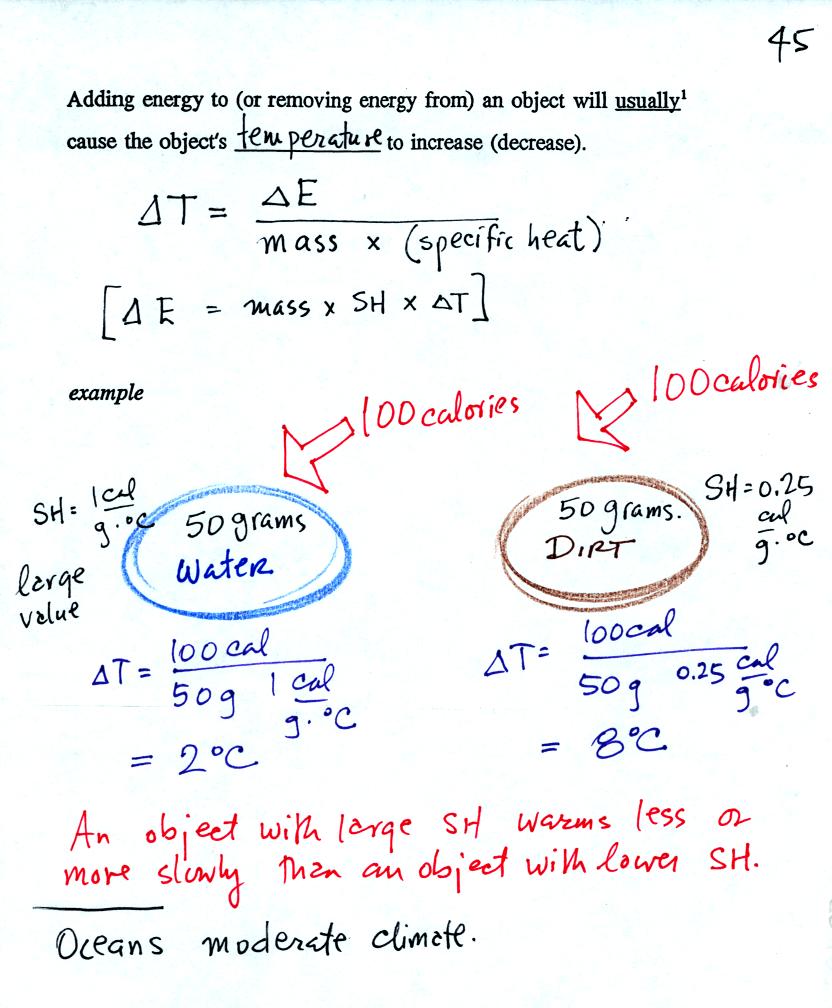 45
Adding energy to (or removing energy from) an object will usually¹
cause the object's temperature to increase (decrease).
ΔT = ΔE / mass x (specific heat)
[ΔE = mass x SH x ΔT]
example
100 calories
100 calories
SH = 1 cal / g·°C
large
value
50 grams
Water
50 grams.
DIRT
SH = 0.25
cal / g·°C
ΔT = 100 cal / 50 g 1 cal / g·°C
= 2 °C
ΔT = 100 cal / 50 g 0.25 cal / g °C
= 8 °C
An object with large SH warms less or
more slowly than an object with lower SH.
Oceans moderate climate.